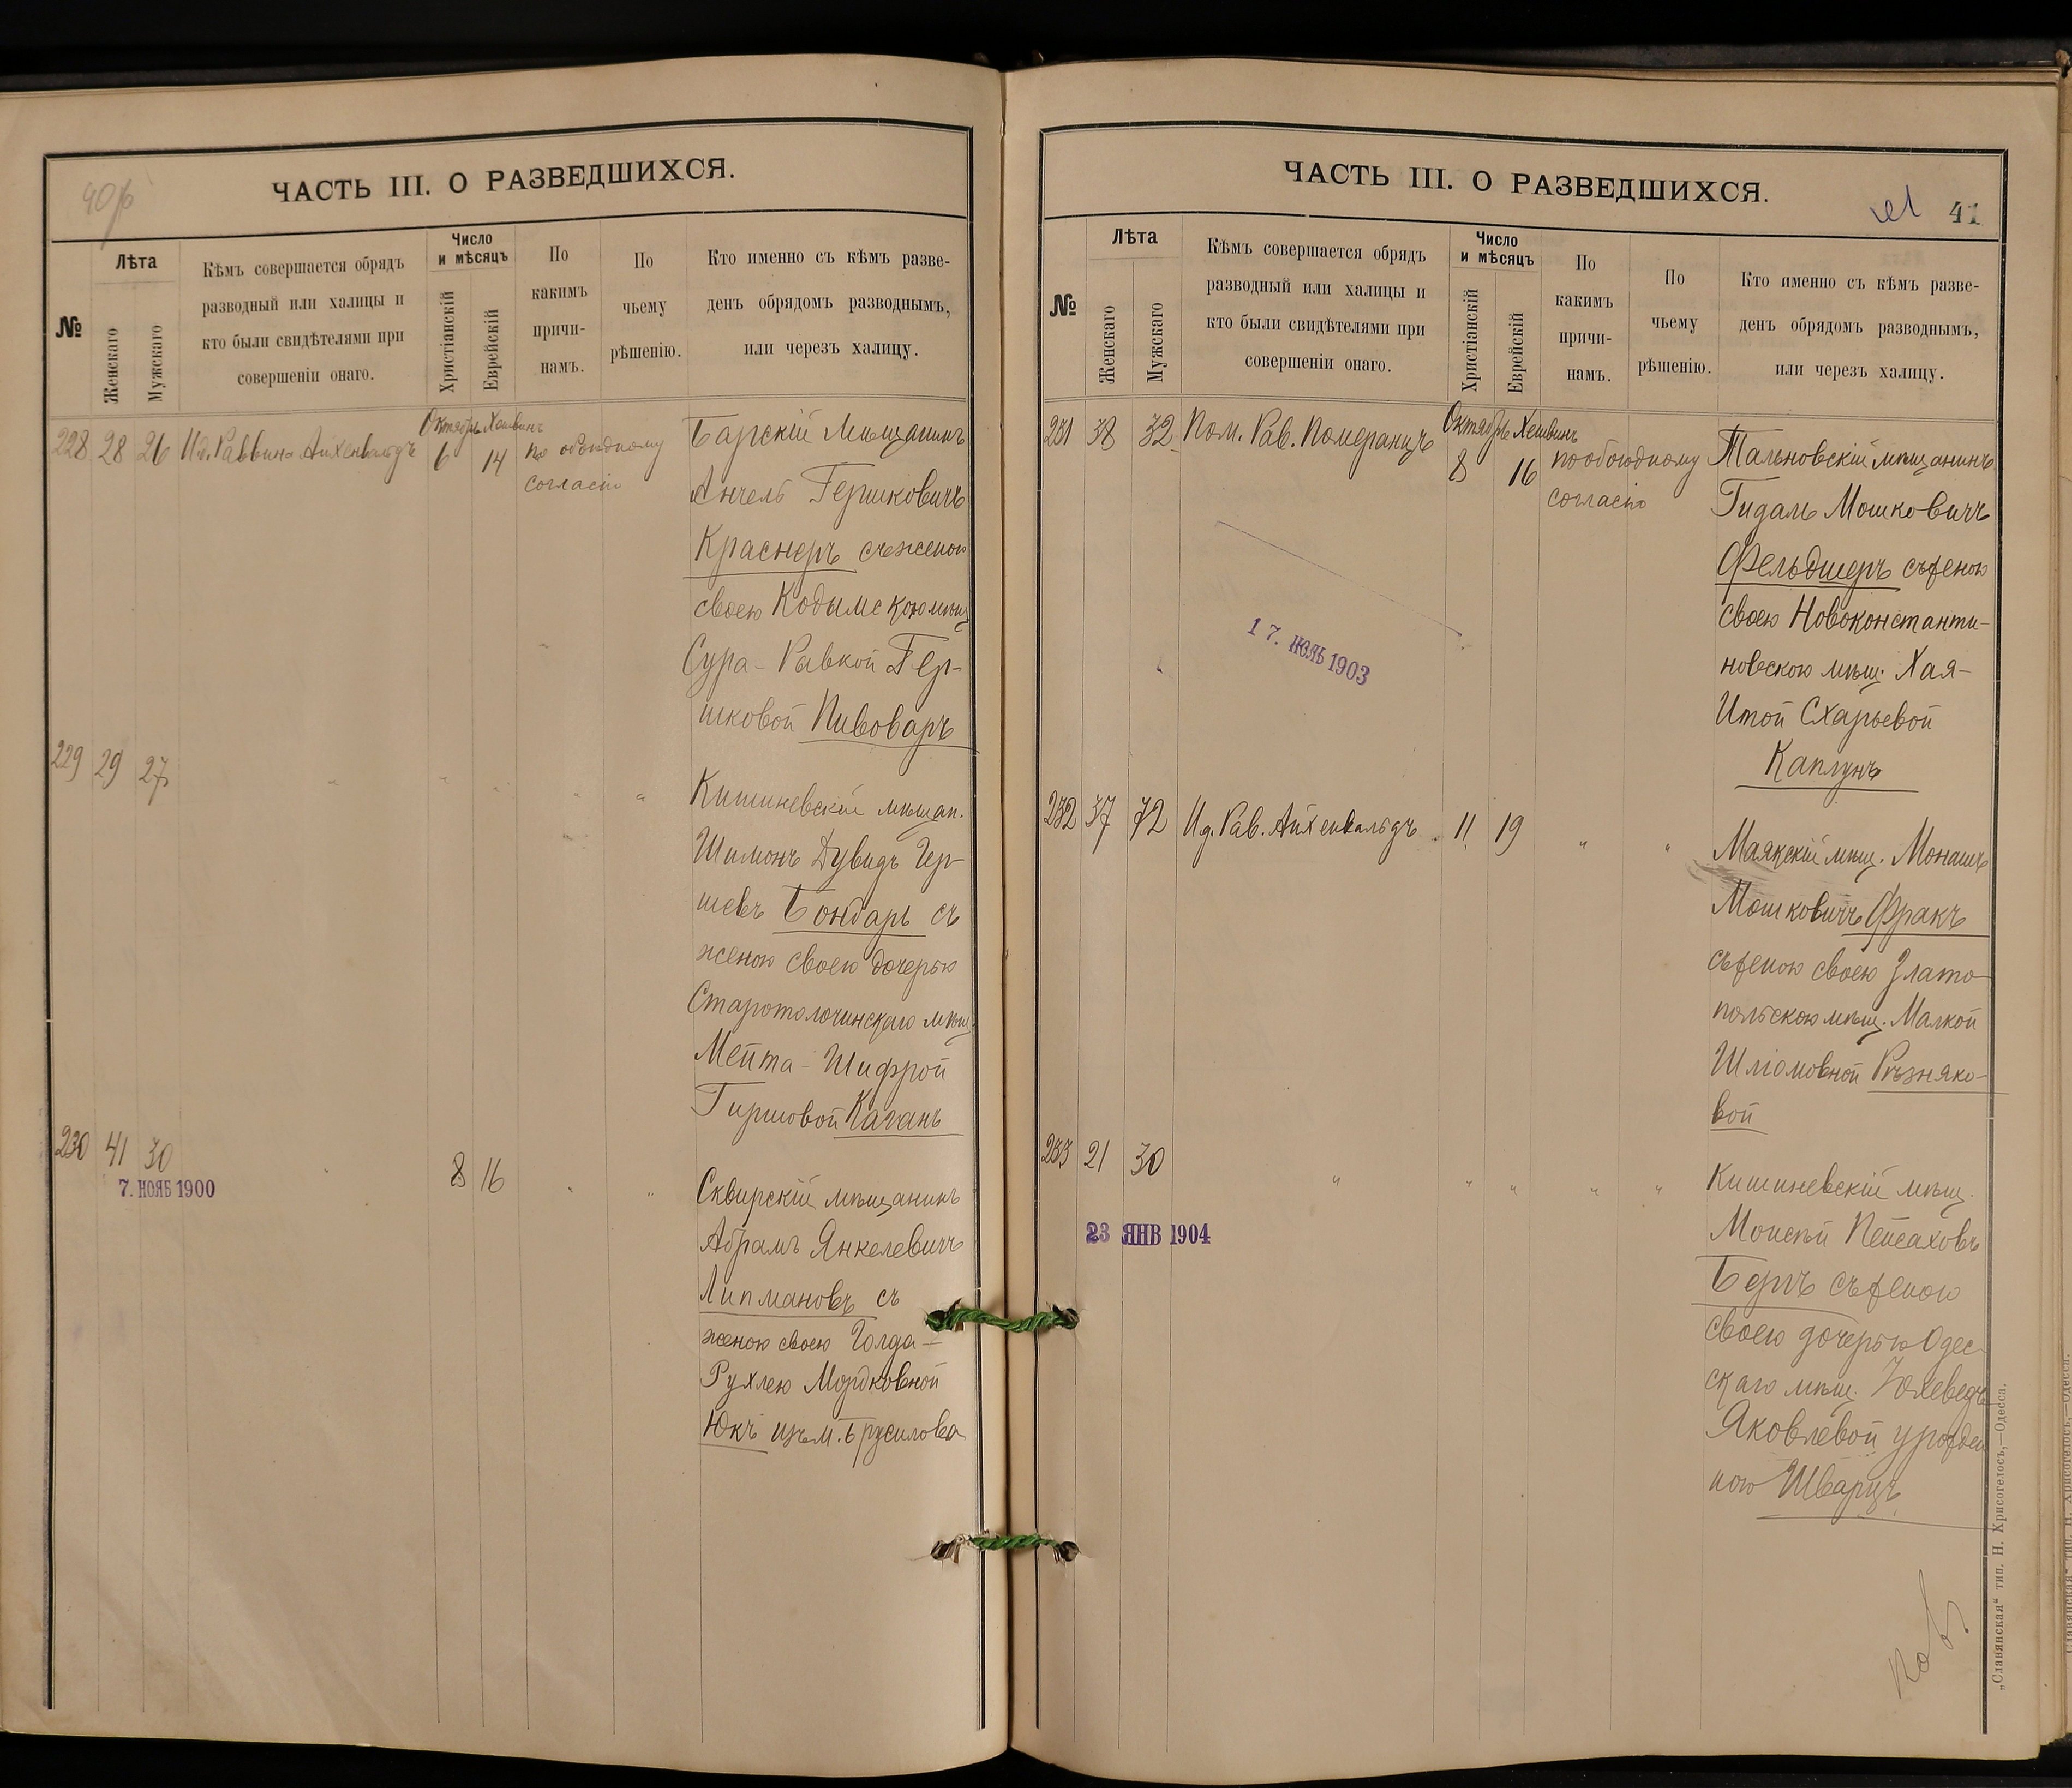 40/б
ЧАСТЬ III. О РАЗВЕДШИХСЯ.
№
Лѣта
Женскаго
Мужскаго
Кѣмъ совершается обрядъ
разводный или халицы и
кто были свидѣтелями при
совершеніи онаго.
Число
и мѣсяцъ
Христіанскій
Еврейскій
По
какимъ
причи-
намъ.
По
чьему
рѣшенію.
Кто именно съ кѣмъ разве-
денъ обрядомъ разводнымъ,
или черезъ халицу.
Октябрь Хешвинъ
228 28 26 И.д. Раввина Айхенвальдъ 6 14 по обоюдному
согласію
Барскій мѣщанинъ
Анчель Гершковичъ
Краснеръ съ женою
своею Кодымскою мѣщ
Сура-Равкой Гер-
шковой Пивоваръ
229 29 27 " " " " "
Кишиневскій мѣщан.
Шимонъ Дувидъ Гер-
шевъ Бондарь съ
женою своею дочерью
Старотолочинскаго мѣщ.
Мейта-Шифрой
Гиршовой Каганъ
230 41 30 " 8 16 " "
7. НОЯБ 1900
Сквирскій мѣщанинъ
Абрамъ Янкелевичъ
Липмановъ съ
женою своею Голда-
Рухлею Мордковной
Юкъ изъ м. Брусилова
ЧАСТЬ III. О РАЗВЕДШИХСЯ.
41
№
Лѣта
Женскаго
Мужскаго
Кѣмъ совершается обрядъ
разводный или халицы и
кто были свидѣтелями при
совершеніи онаго.
Число
и мѣсяцъ
Христіанскій
Еврейскій
По
какимъ
причи-
намъ.
По
чьему
рѣшенію.
Кто именно съ кѣмъ разве-
денъ обрядомъ разводнымъ,
или черезъ халицу.
Октябрь Хешвинъ
231 38 32 Пом. Рав. Померанцъ 8 16 по обоюдному
согласію
Тальновскій мѣщанинъ
Гидаль Мошковичъ
Фельдшеръ съ женою
своею Новоконстанти-
новскою мѣщ. Хая-
Итой Схарьевой
Каплунъ
17. ІЮЛЬ 1903
232 37 72 И.д. Рав. Айхенвальдъ 11 19 " "
Маякскій мѣщ. Монашъ
Мошковичъ Фракъ
съ женою своею Злато-
польскою мѣщ. Малкой
Шліомовной Рѣзняко-
вой
233 21 30 " " " " "
23 ЯНВ 1904
Кишиневскій мѣщ.
Моисей Пейсаховъ
Бергъ съ женою
своею дочерью Одес
скаго мѣщ. Юхеведъ
Яковлевой урожден
ною Шварцъ
„Славянская“ тип. Н. Хрисогелосъ,—Одесса.